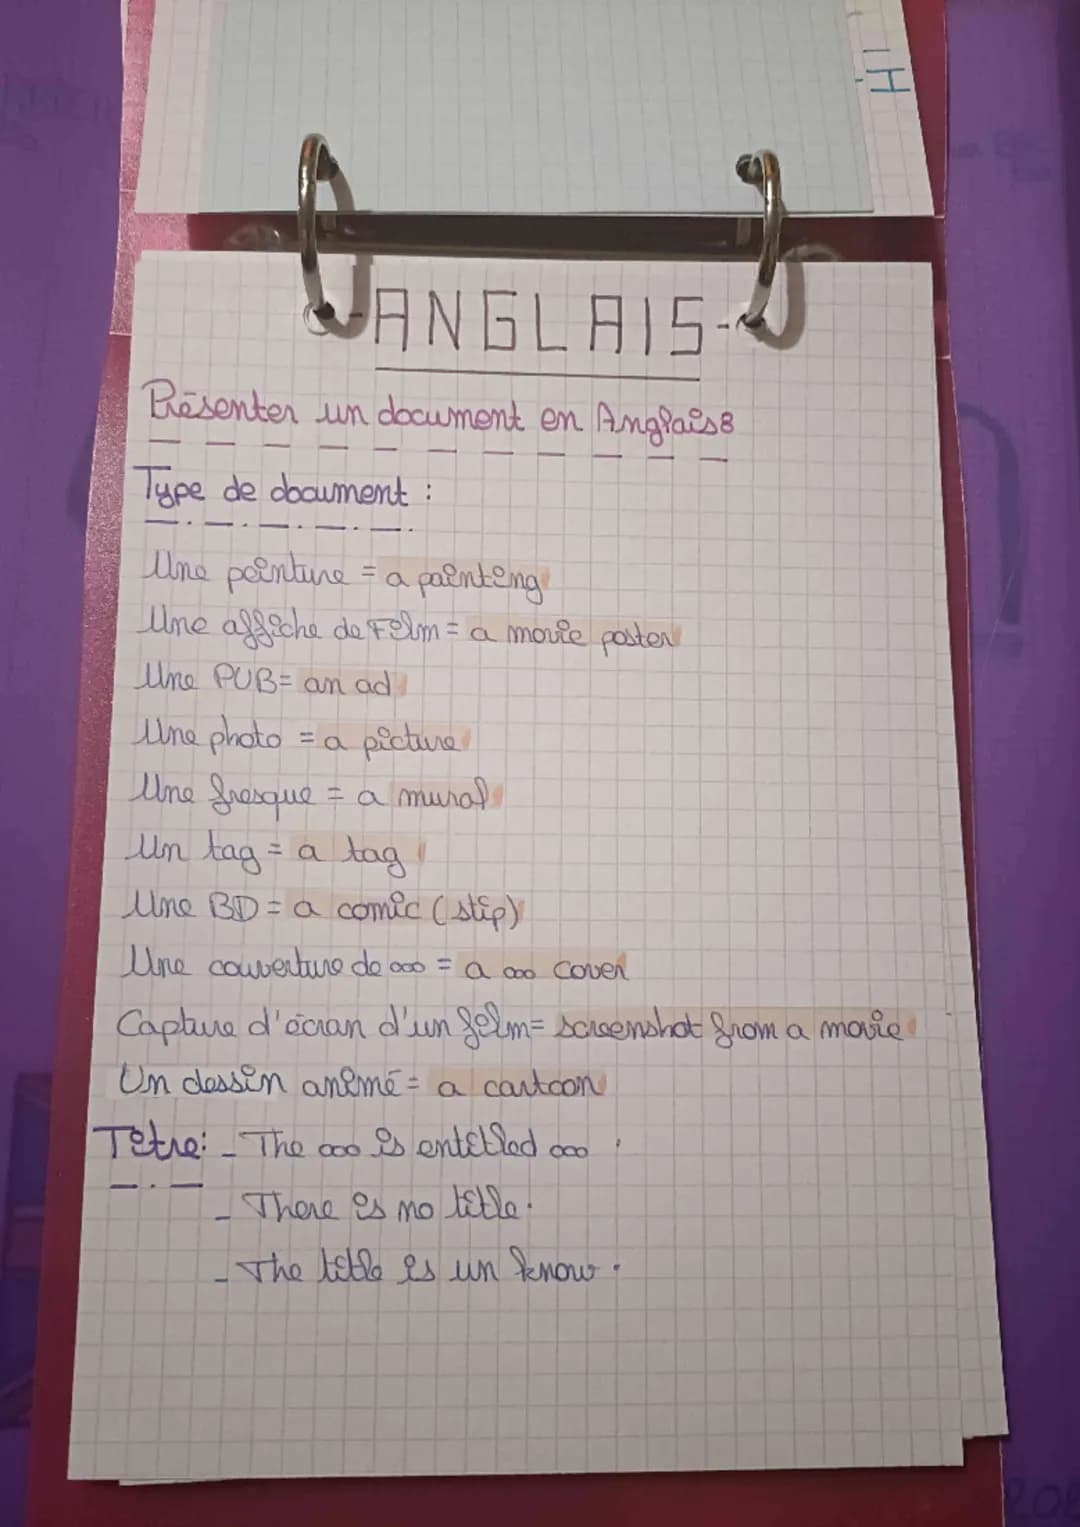 -ANGLAIS-
Présenter un document en Anglais:
Type de document :
Une peinture = a painting
Une affiche de Film = a movie poster
Une PUB = an ad
Une photo = a picture
Une fresque = a mural
Un tag = a tag
Une BD = a comic (stip)
Une couverture de ooo = a ooo cover
Capture d'écran d'un film = screenshot from a movie
Un dessin animé = a cartoon
Titre: - The ooo is entitled ooo .
- There is no title.
- The title is un know.